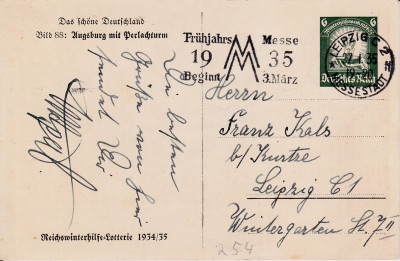 Das schöne Deutschland
Bild 88: Augsburg mit Perlachturm
Die besten
Grüße von hier
sendet Dir
Reichswinterhilfe-Lotterie 1934/35
Frühjahrs M Messe
19 35
Beginnt 3. März
6 6
Deutsches Reich
LEIPZIG C 2
35
MESSESTADT
Herrn
Franz Kals
b/ Kuntze
Leipzig C1
Wintergarten St. 7 II
254